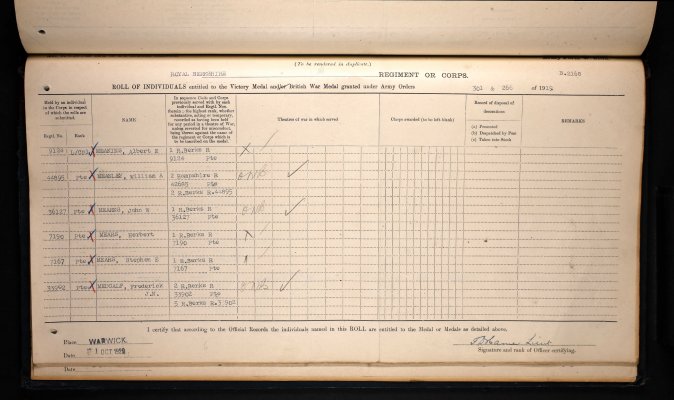 (To be rendered in duplicate.)
ROYAL BERKSHIRE REGIMENT OR CORPS. B.2168
ROLL OF INDIVIDUALS entitled to the Victory Medal and/or British War Medal granted under Army Orders 301 & 266 of 1919
Held by an individual in the Corps in respect of which the rolls are submitted.
Regtl. No. Rank
NAME
In sequence Units and Corps previously served with by each individual and Regtl. Nos. therein
Theatres of war in which served
Clasps awarded (to be left blank)
Record of disposal of decorations
(a) Presented
(b) Despatched by Post
(c) Taken into Stock
REMARKS
9124 L/Cpl MEAKINS, Albert E 1 R.Berks R
9124 Pte
44895 Pte MEASLEY, William A 2 Hampshire R
Pte
2 R.Berks R.
36127 Pte MEARNS, John W 1 R.Berks R
36127 Pte
7190 Pte MEARS, Herbert 1 R.Berks R
7190 Pte
7167 Pte MEARS, Stephen E 1 R.Berks R
7167 Pte
33902 Pte MEDCALF, Frederick 2 R.Berks R
J.H. 33902 Pte
5 R.Berks R.
I certify that according to the Official Records the individuals named in this ROLL are entitled to the Medal or Medals as detailed above.
Place WARWICK
Date OCT
Lieut
Signature and rank of Officer certifying.
Date